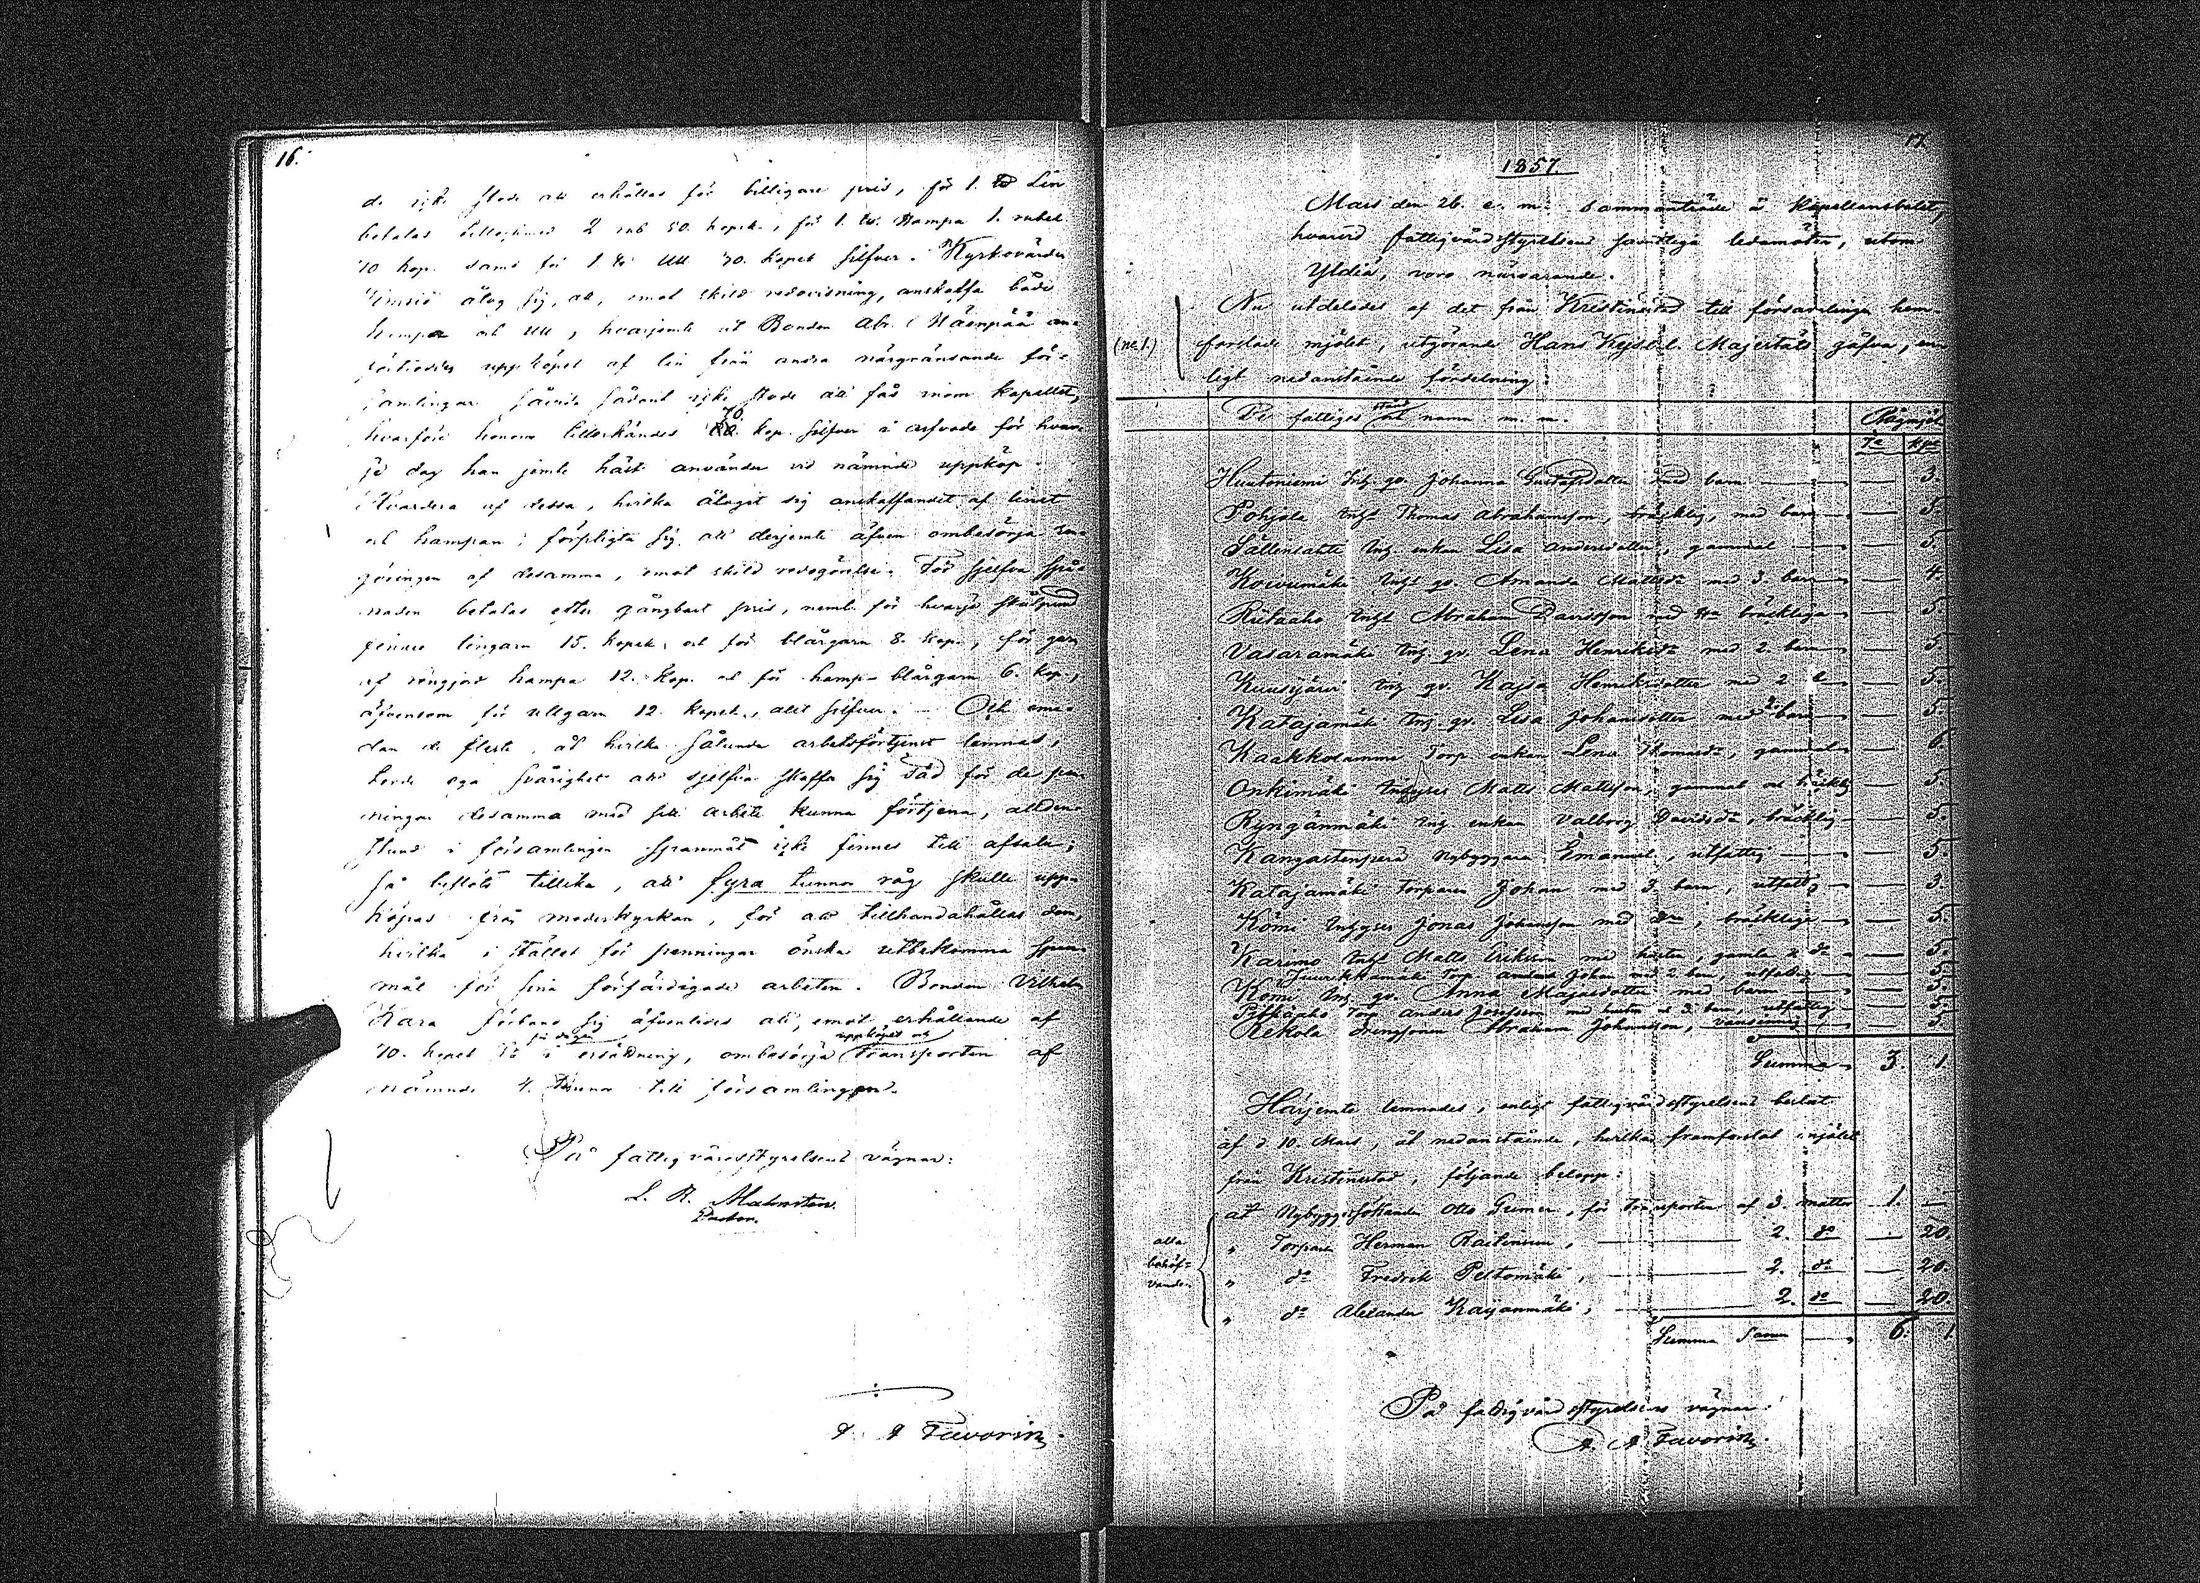 16.
de icke stode att erhållas för billigare pris, för 1. ℔ Lin
betalas 2 rub 50. kopek, för 1. ℔. Hampa 1. rubel
10 kop. samt för 1 ℔ Ull 70. kopek silfver. Kyrkovärden
åtog sig, att, emot skild redovisning, anskaffa både
hampa och ull, hvarjemte åt Bonden Abr.
uppköpet af lin från andra närgränsande för-
samlingar såvida sådant icke stode att fås inom kapellet,
hvarföre honom tillerkändes 70. kop. silfver i arfvode för hvar-
je dag han jemte häst använder vid nämnde uppköp.
Hvardera af dessa, hvilka åtagit sig anskaffandet af linet
och hampan, förpligta sig att derjemte äfven ombesörja
af desamma, emot skild redogörelse. För sjelfva spå-
naden betalas efter gångbart pris, neml. för hvarje skålpund
finare lingarn 15. kopek, och för blårgarn 8. kop., för garn
af rengjord hampa 12. kop. och för hamp-blårgarn 6. kop.,
äfvensom för ullgarn 12. kopek, allt silfver. — Och eme-
dan de fleste, åt hvilka sålunda arbetsförtjenst lemnas,
torde ega svårighet att sjelfva skaffa sig säd för de pen-
ningar desamma med sitt arbete kunna förtjena, allden-
stund i församlingen spannmål icke finnes till afsalu,
så beslöts tillika, att fyra tunnor råg skulle upp-
köpas från moderkyrkan, för att tillhandahållas dem,
hvilka i stället för penningar önska utbekomma span-
mål för sina förfärdigade arbeten. Bonden Vilhelm
Kara förband sig äfvenledes att, emot erhållande af
70. kopek i ersättning, ombesörja uppköpet och transporten af
nämnde 4. tunnor till församlingen.
På fattigvårdsstyrelsens vägnar:
L. R. Malmsten.
A Favorin.
17.
1857.
Mars den 26. e. m. sammanträde å Kapellansbolet,
hvarvid fattigvårdsstyrelsens samtliga ledamöter, utom
Yldiä, voro närvarande.
Nu utdelades af det från Kristinestad till församlingen hem-
(no 1.) forslade mjölet, utgörande Hans Kejserl. Majestäts gåfva, en-
ligt nedanstående fördelning:
De fattiges stånd och namn m. m. Rågmjöl
Ta kpr
Huutoniemi Inh. qv. Johanna Gustafsdotter med barn — 3.
Pohjola Inhs Thomas Abrahamsson, bräcklig, med barn — 5.
Sällinsaari Inh enkan Lisa Andersdotter, gammal — 5.
Koivumäki Inhs qv. Amanda Mattsdr med 3. barn — 4.
Riitaaho Inhs Abraham Davidsson med bräckliga — 5.
Vasaramäki Inh. qv. Lena Henriksdr med 2. barn — 5.
Kuusijärvi Inh qv. Kajsa Henriksdotter med 2 do — 5.
Katajamäki Inh. qv. Lisa Johansdotter med 2 barn — 5.
Kaakkolammi Torp. enkan Lena Thomasdr, gammal — 6.
Onkimäki Inhyses Matts Mattsson, gammal och bräcklig — 5.
Ryngänmäki Inh. enkan Valborg Davidsdr, bräcklig — 5.
Kangastenperä Nybyggare Emanuel, utfattig — 5.
Katajamäki Torparen Johan med 3. barn, utfattig — 3.
Kömi Inhyses Jonas Johansson med bräcklige — 5.
Karimo Inhs Matts Eriksson med hustru, gamle — 5.
Torp. Anders Johan med 2. barn, utfattig — 5.
Kömi Inh. qv. Anna Majasdotter med barn — 5.
Torp Anders Jönsson med hustru och 3. barn, utfattig — 5.
Rekola Drengsonen Abraham Johansson, vansinnig — 5.
Summa 3. 1.
Härjemte lemnades, enligt fattigvårdsstyrelsens beslut
af d 10. Mars, åt nedanstående, hvilka framforslat mjölet
från Kristinestad, följande belopp:
åt Nybyggessökanden Otto, för transporten af 3. mattor 1. —
alla behöf-vande. „ Torparen Herman Raitaniemi, — 2. do . 20.
„ do Fredrik Peltomäki, — 2. do — 20.
„ do Alexander Kayanmäki, — 2. do — 20.
Summa Summ — 6. 1.
På fattigvårdsstyrelsens vägnar:
A Favorin.